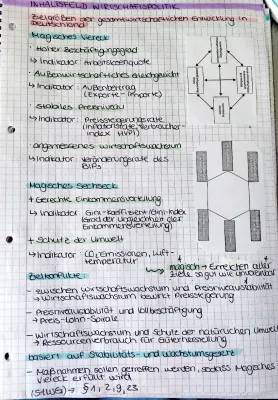 INHALTSFELD WIRTSCHAFTSPOLITIK
Zielgrößen der gesamtwirtschaftlichen Entwicklung in
Deutschland
Magisches Viereck
· Hoher Beschäftigungsgrad
↳ Indikator: Arbeitslosenquote
· Außenwirtschaftliches Gleichgewicht
↳ Indikator: Außenbeitrag
(Exporte - Importe)
· Stabiles Preisniveau
↳ Indikator: Preissteigerungsrate
(Inflationsrate, Verbraucher-
index HVPI)
· angemessenes Wirtschaftswachstum
↳ Indikator: Veränderungsrate des
BIPs
Magisches Sechseck
+ Gerechte Einkommensverteilung
↳ Indikator: Gini-Koeffizient/Gini-Index
Grad der Ungleichheit der
Einkommensverteilung
+ Schutz der Umwelt
↳ Indikator: CO₂ Emissionen, Luft-
temperatur
↳ magisch → Erreichen aller
Ziele so gut wie unmöglich
Zielkonflikte
- zwischen Wirtschaftswachstum und Preisniveaustabilität
→ Wirtschaftswachstum bewirkt Preissteigerung
- Preisniveaustabilität und Vollbeschäftigung
→ Preis-Lohn-Spirale
- Wirtschaftswachstum und Schutz der natürlichen Umwelt
→ Ressourcenverbrauch für Güterherstellung
basiert auf Stabilitäts- und Wachstumsgesetz
- Maßnahmen sollen getroffen werden, sodass Magisches
Viereck erfüllt wird
(StWG) → § 1, 2, 9, 23